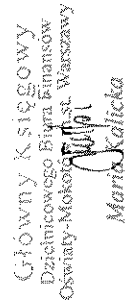 Główny Księgowy
Dzielnicowego Biura Finansów
Oświaty-Mokotów m.st. Warszawy
Maria Kalicka